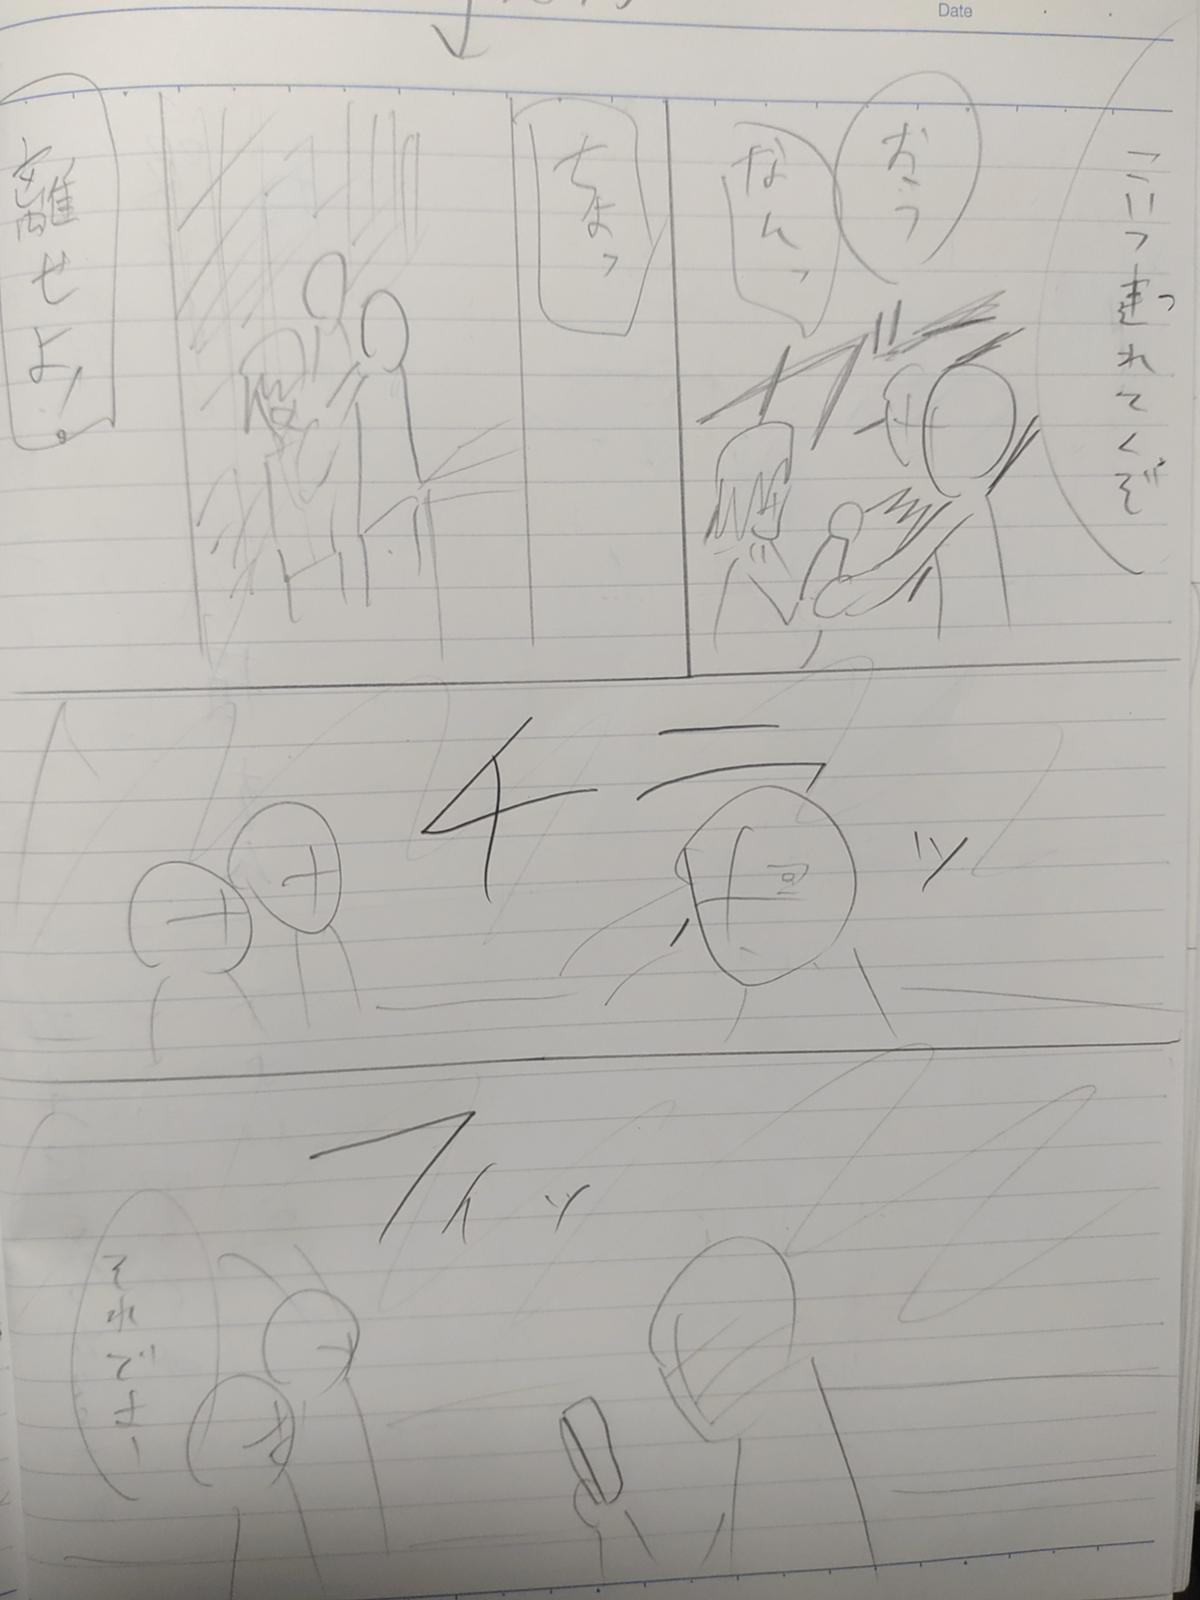 Date
こいつ連れてくぞ
おうっ
なんっ
ガッ
ちょっ
離せよ!。
チラッ
フイッ
それでさー